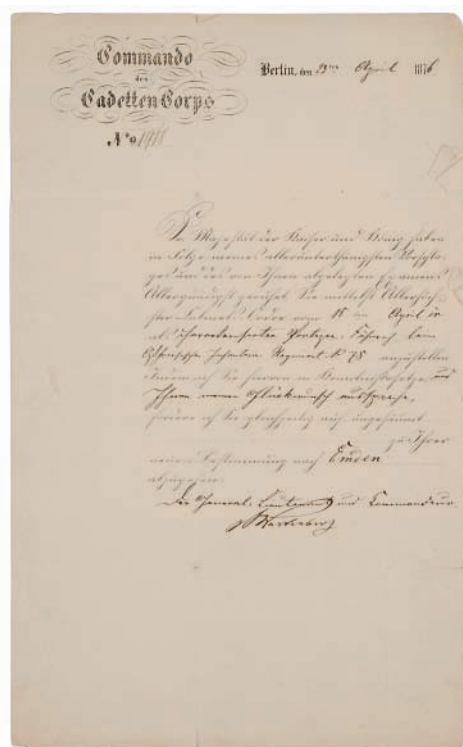 Commando
des
Cadetten Corps
Berlin, den 23ten April 1876
No. 1918
Se. Majestät der Kaiser und König haben
in Folge meines allerunterthänigsten Vorschla-
ges und des von Ihnen abgelegten Examens
Allergnädigst geruht, Sie mittelst Allerhöch-
ster Kabinets-Ordre vom 15 ten April
als charakterisirter Portepee-Fähnrich beim
Ostfriesischen Infanterie Regiment No 78 anzustellen
Indem ich Sie hiervon in Kenntniß setze und
Ihnen meinen Glückwunsch ausspreche,
fordere ich Sie gleichzeitig auf, ungesäumt
zu Ihrer
neuen Bestimmung nach Emden
abzugehen.
Der General-Lieutenant und Commandeur